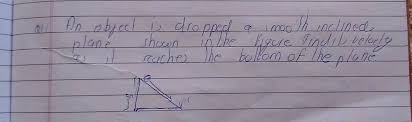 An object is dropped a smooth inclined
plane shown in the figure find its velocity
as it reaches the bottom of the plane